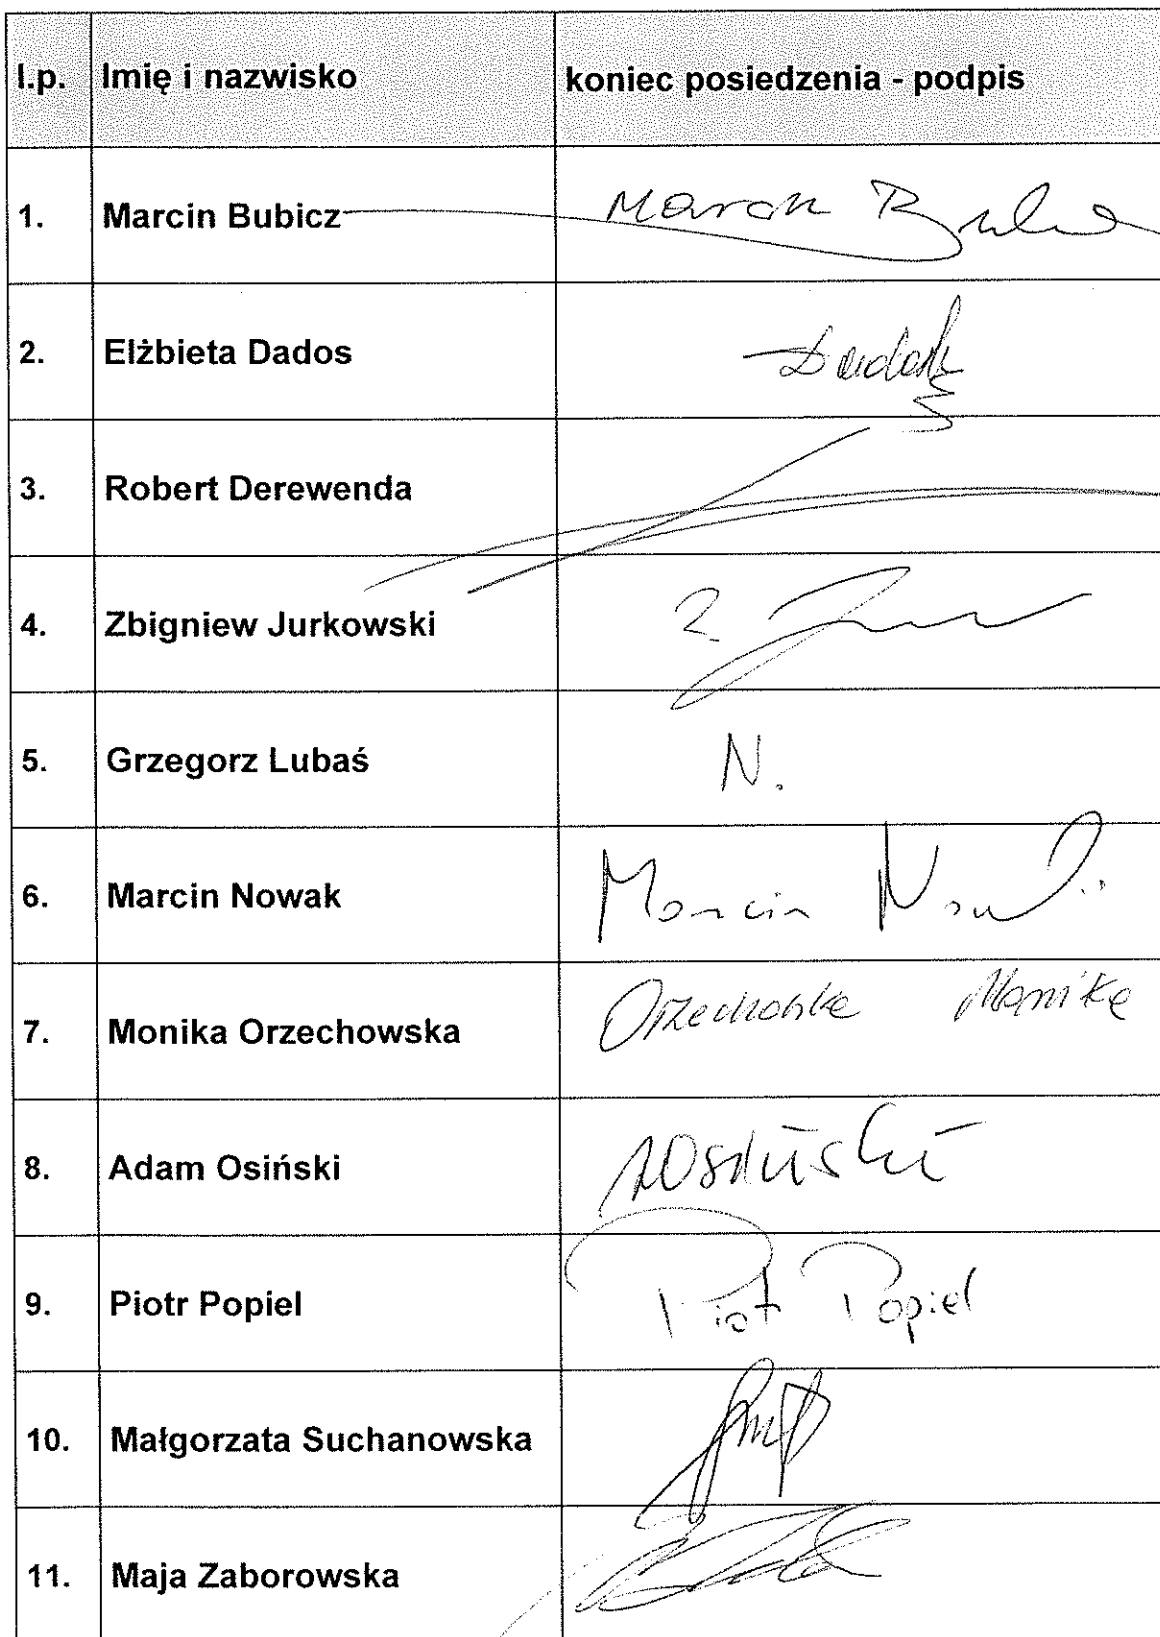 l.p. Imię i nazwisko koniec posiedzenia - podpis
1. Marcin Bubicz Marcin
2. Elżbieta Dados
3. Robert Derewenda
4. Zbigniew Jurkowski
5. Grzegorz Lubaś N.
6. Marcin Nowak Marcin Nowak
7. Monika Orzechowska Orzechowska Monika
8. Adam Osiński AOsiński
9. Piotr Popiel Piotr Popiel
10. Małgorzata Suchanowska
11. Maja Zaborowska